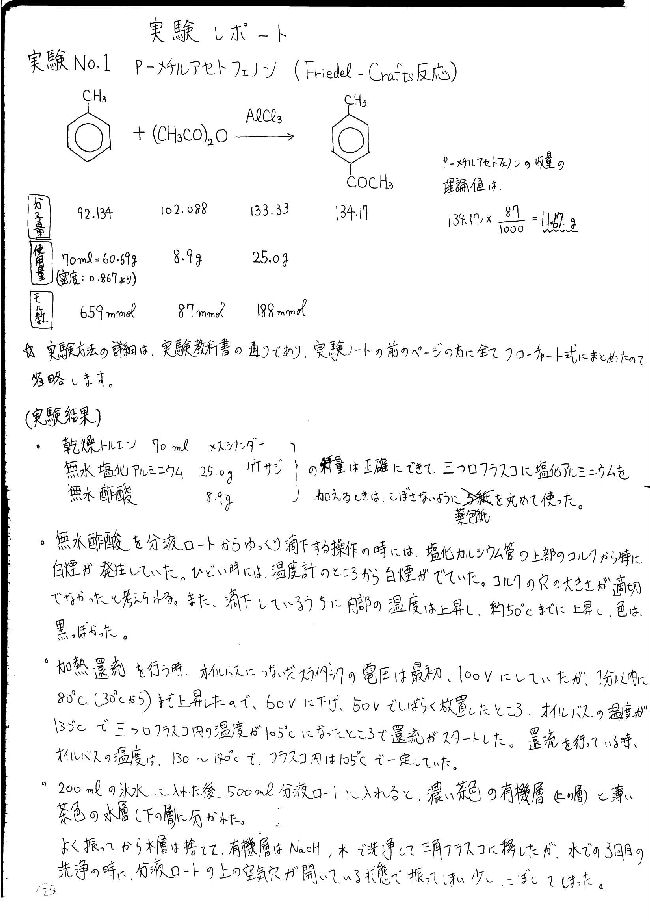 実験レポート
実験No.1 P-メチルアセトフェノン (Friedel-Crafts反応)
CH3 + (CH3CO)2O AlCl3 CH3
COCH3
P-メチルアセトフェノンの収量の
理論値は、
134.17 × 87/1000 = 11.67 g
分子量 92.134 102.088 133.33 134.17
使用量 70ml=60.69g 8.9g 25.0g
(密度: 0.867より)
モル数 659mmol 87mmol 188mmol
☆ 実験方法の詳細は、実験教科書の通りであり、実験ノートの前のページの方に全てフローチャート式にまとめたので
省略します。
(実験結果)
・ 乾燥トルエン 70 ml メスシリンダー
無水塩化アルミニウム 25.0g 薬サジ
無水酢酸 8.9g
の秤量は正確にできて、三つ口フラスコに塩化アルミニウムを
加えるときは、こぼさないように 薬包紙を丸めて使った。
・ 無水酢酸を分液ロートからゆっくり滴下する操作の時には、塩化カルシウム管の上部のコルクから特に
白煙が発生していた。ひどい時には、温度計のところから白煙がでていた。コルクの穴の大きさが適切
でなかったと考えられる。また、滴下しているうちに内部の温度は上昇し、約50℃までに上昇し、色は
黒っぽかった。
・ 加熱還流を行う時、オイルバスにつないだスライダックの電圧は最初、100Vにしていたが、1分以内に
80℃(30℃から)まで上昇したので、60Vに下げ、50Vでしばらく放置したところ、オイルバスの温度が
135℃で三つ口フラスコ内の温度が105℃になったところで還流がスタートした。還流を行っている時、
オイルバスの温度は、130〜140℃で、フラスコ内は105℃で一定していた。
・ 200mlの氷水に入れた後、500ml分液ロートに入れると、濃い茶色の有機層(上の層)と薄い
茶色の水層(下の層)に分かれた。
よく振ってから水層は捨てて、有機層はNaOH、水で洗浄して三角フラスコに移したが、水での3回目の
洗浄の時に、分液ロートの上の空気穴が開いている状態で振ってしまい少しこぼしてしまった。